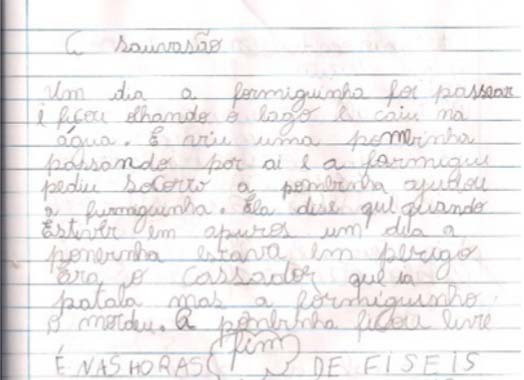 A sauvasão
Um dia a formiguinha foi passear
e ficou olhando o lago e caiu na
água. E viu uma pombinha
passando por ai e a formigui
pediu socorro a pombinha ajudou
a furmiguinha. Ela dise que quando
Estiver em apuros um dia a
ponbinha estava em perigo
Era o cassador que ia
patala mas a formiguinho
o mordeu. A pombinha ficou livre
fim
É NAS HORAS DE FISEIS